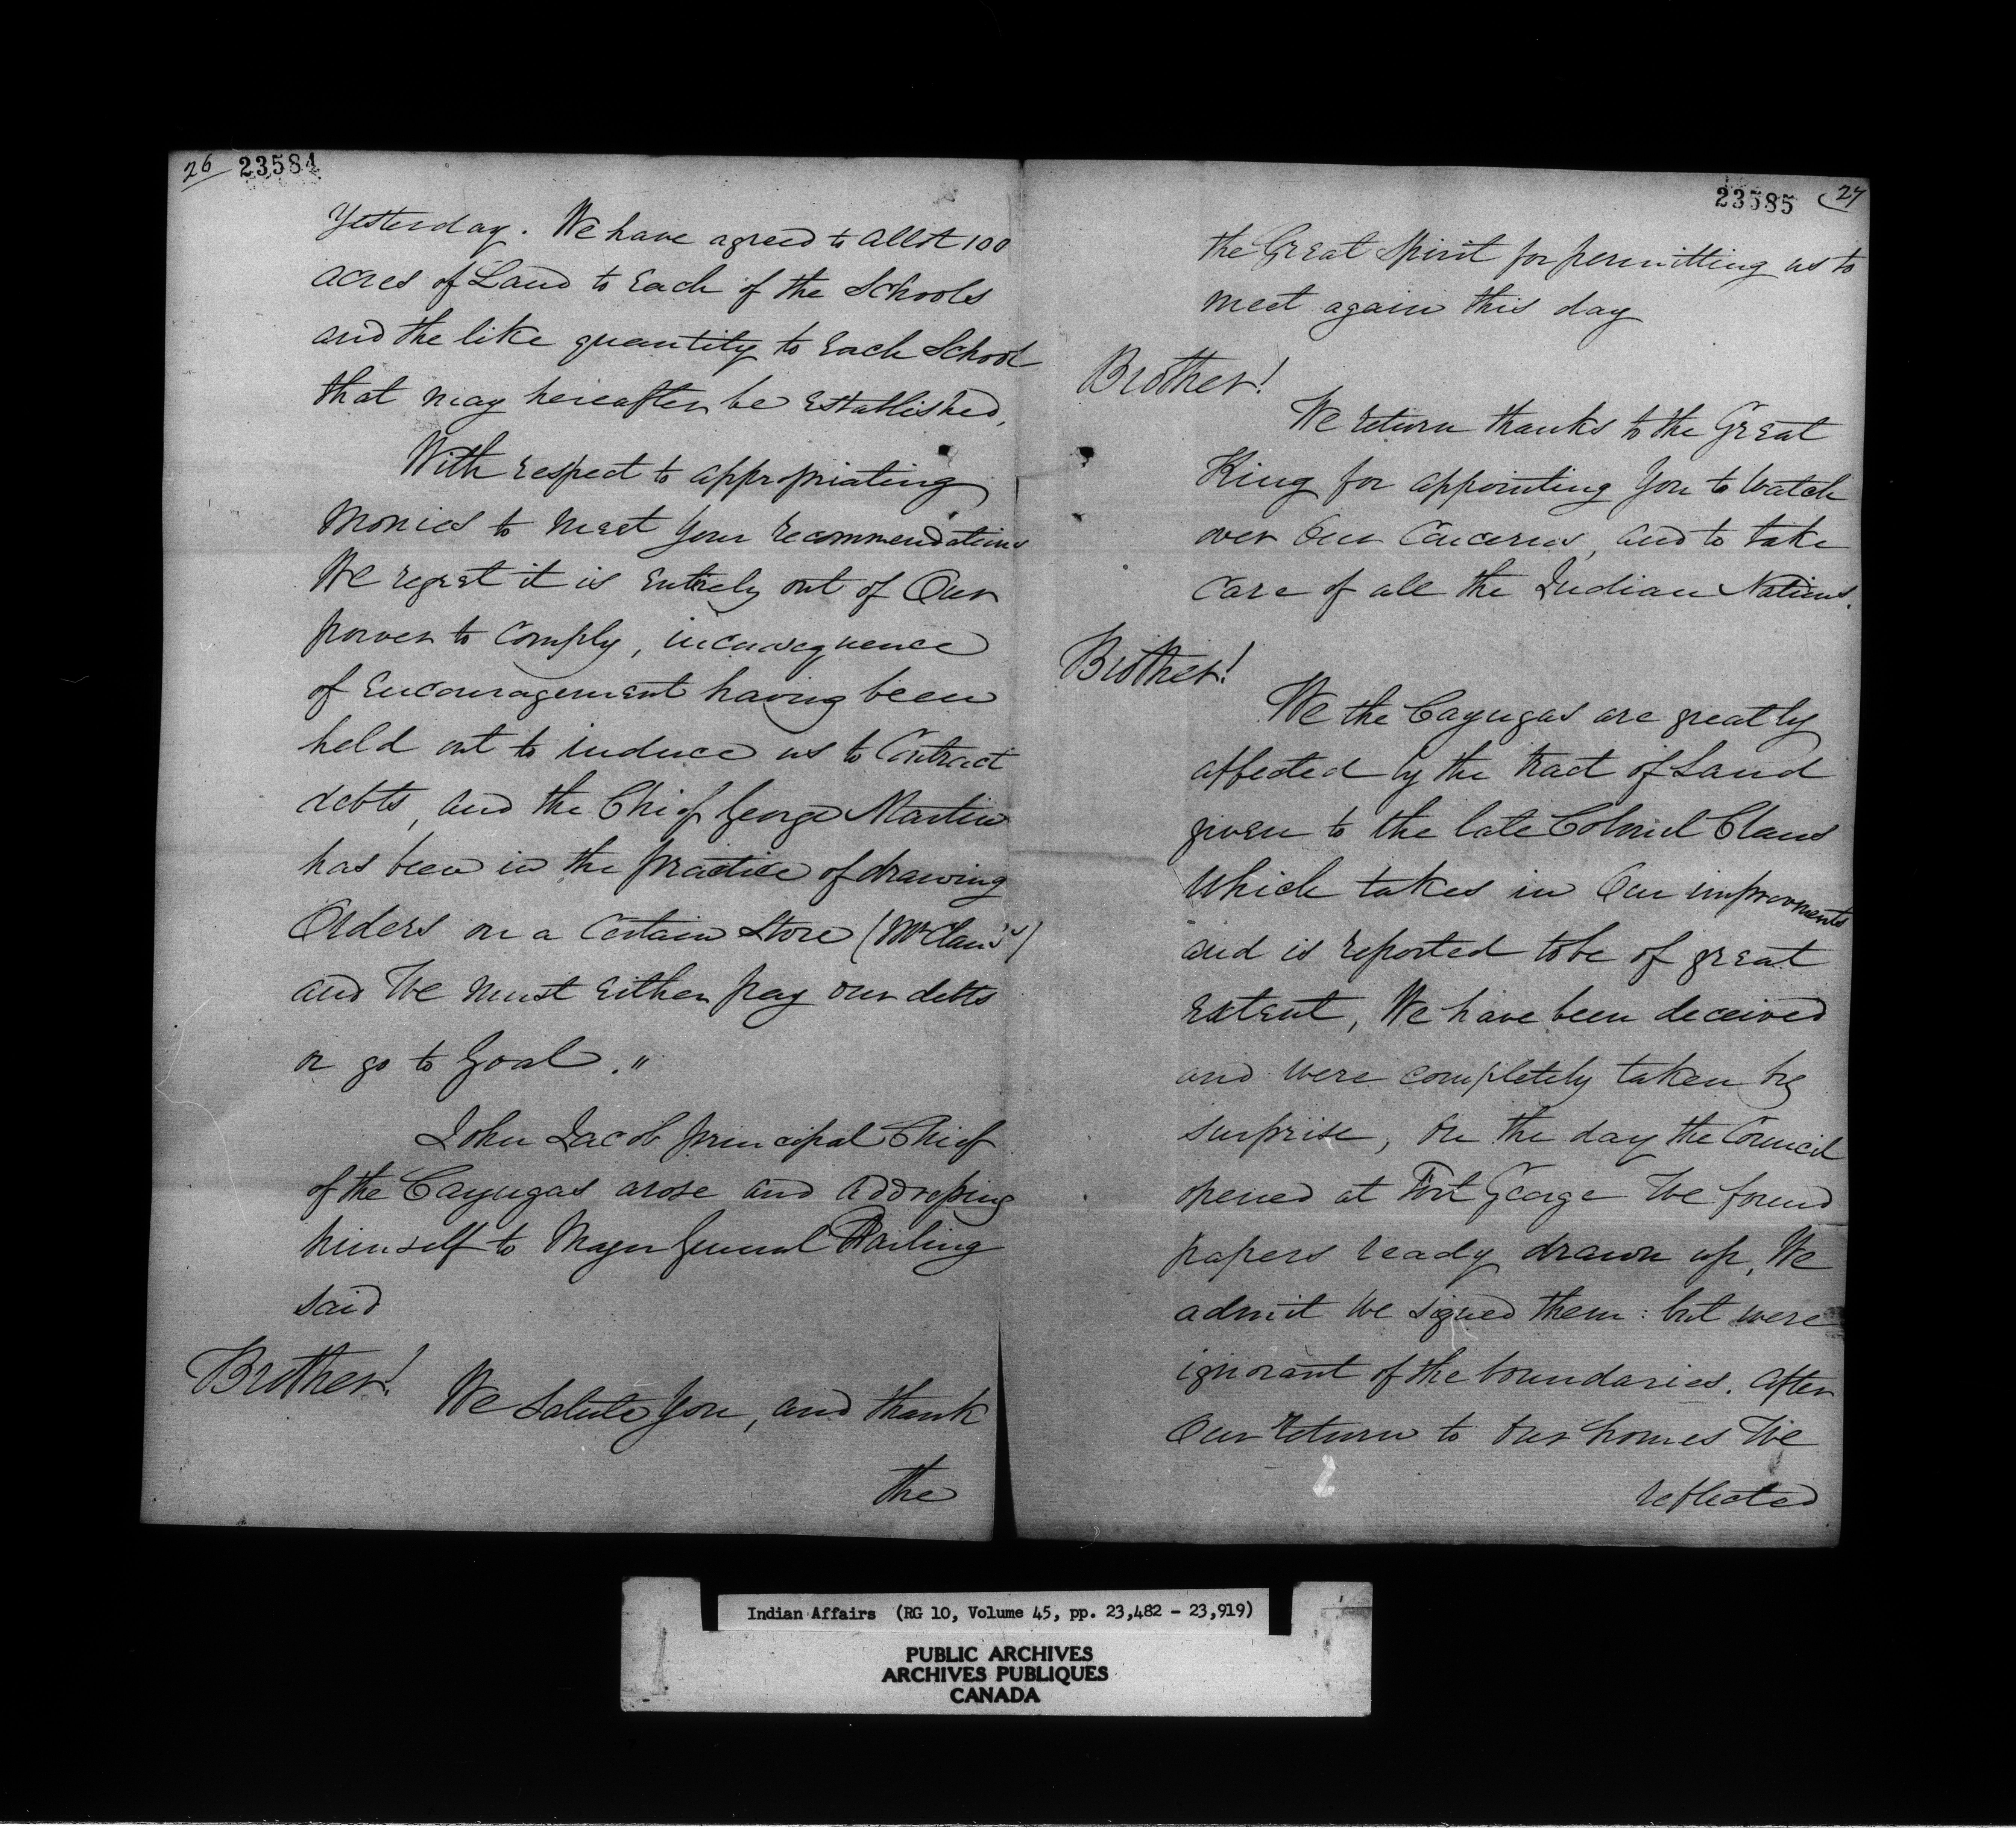 26 23584
Yesterday. We have agreed to allot 100
acres of Land to Each of the Schools
and the like quantity to Each School
that may hereafter be Established,
With respect to appropriating
Monies to meet your recommendations
We regret it is Entirely out of Our
power to comply, inconsequence
of Encouragement having been
held out to induce us to Contract
debts, and the Chief George Martin
has been in the practice of drawing
Orders on a Certain Store (Mr Claus's)
and We must Either pay our debts
or go to Goal."
John Jacob principal Chief
of the Cayugas arose and addressing
himself to Major General Darling
said
Brother! We Salute you, and thank
the
23585 27
the Great Spirit for permitting us to
meet again this day
Brother!
We return thanks to the Great
King for appointing you to Watch
over Our Concerns, and to take
Care of all the Indian Nations.
Brother!
We the Cayugas are greatly
affected by the tract of Land
given to the late Colonel Claus
Which takes in Our improvments
and is reported to be of great
Extent, We have been deceived
and were completely taken by
surprise, On the day the Council
opened at Fort George We found
papers ready drawn up, We
admit We signed them: but were
ignorant of the boundaries. After
Our return to Our homes We
reflected
Indian Affairs (RG 10, Volume 45, pp. 23,482 - 23,919)
PUBLIC ARCHIVES
ARCHIVES PUBLIQUES
CANADA